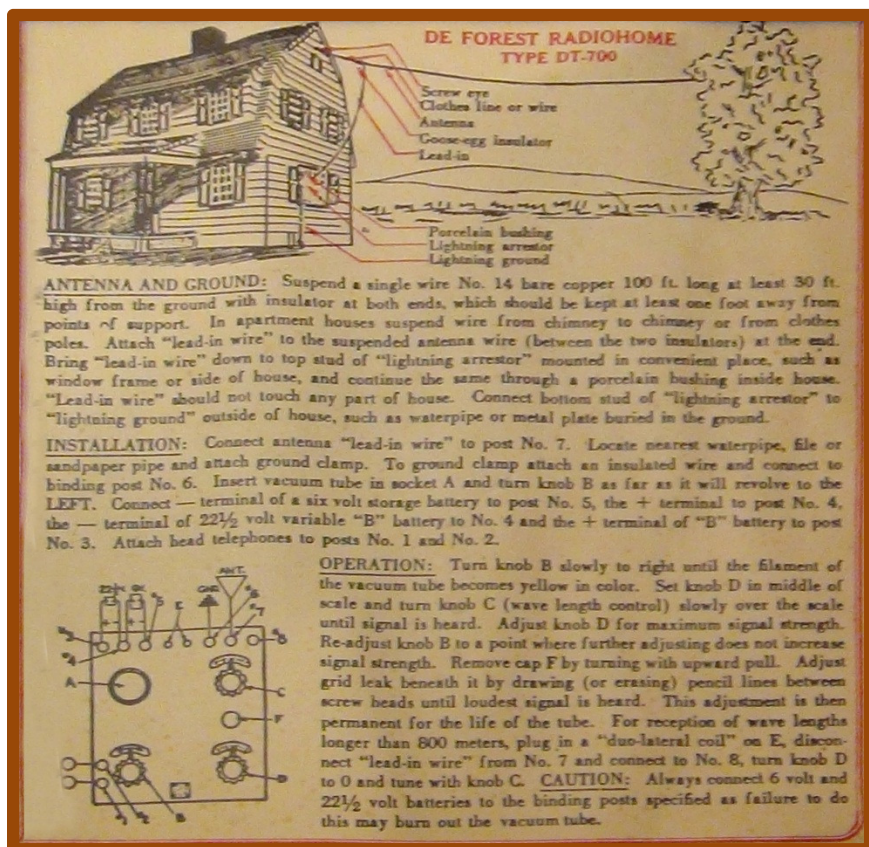 DE FOREST RADIOHOME
TYPE DT-700
Screw eye
Clothes line or wire
Antenna
Goose-egg insulator
Lead-in
Porcelain bushing
Lightning arrestor
Lightning ground
ANTENNA AND GROUND: Suspend a single wire No. 14 bare copper 100 ft. long at least 30 ft.
high from the ground with insulator at both ends, which should be kept at least one foot away from
points of support. In apartment houses suspend wire from chimney to chimney or from clothes
poles. Attach "lead-in wire" to the suspended antenna wire (between the two insulators) at the end.
Bring "lead-in wire" down to top stud of "lightning arrestor" mounted in convenient place, such as
window frame or side of house, and continue the same through a porcelain bushing inside house.
"Lead-in wire" should not touch any part of house. Connect bottom stud of "lightning arrestor" to
"lightning ground" outside of house, such as waterpipe or metal plate buried in the ground.
INSTALLATION: Connect antenna "lead-in wire" to post No. 7. Locate nearest waterpipe, file or
sandpaper pipe and attach ground clamp. To ground clamp attach an insulated wire and connect to
binding post No. 6. Insert vacuum tube in socket A and turn knob B as far as it will revolve to the
LEFT. Connect — terminal of a six volt storage battery to post No. 5, the + terminal to post No. 4,
the — terminal of 22½ volt variable "B" battery to No. 4 and the + terminal of "B" battery to post
No. 3. Attach head telephones to posts No. 1 and No. 2.
OPERATION: Turn knob B slowly to right until the filament of
the vacuum tube becomes yellow in color. Set knob D in middle of
scale and turn knob C (wave length control) slowly over the scale
until signal is heard. Adjust knob D for maximum signal strength.
Re-adjust knob B to a point where further adjusting does not increase
signal strength. Remove cap F by turning with upward pull. Adjust
grid leak beneath it by drawing (or erasing) pencil lines between
screw heads until loudest signal is heard. This adjustment is then
permanent for the life of the tube. For reception of wave lengths
longer than 800 meters, plug in a "duo-lateral coil" on E, discon-
nect "lead-in wire" from No. 7 and connect to No. 8, turn knob D
to 0 and tune with knob C. CAUTION: Always connect 6 volt and
22½ volt batteries to the binding posts specified as failure to do
this may burn out the vacuum tube.
ANT.
GND
E
A
C
F
D
B